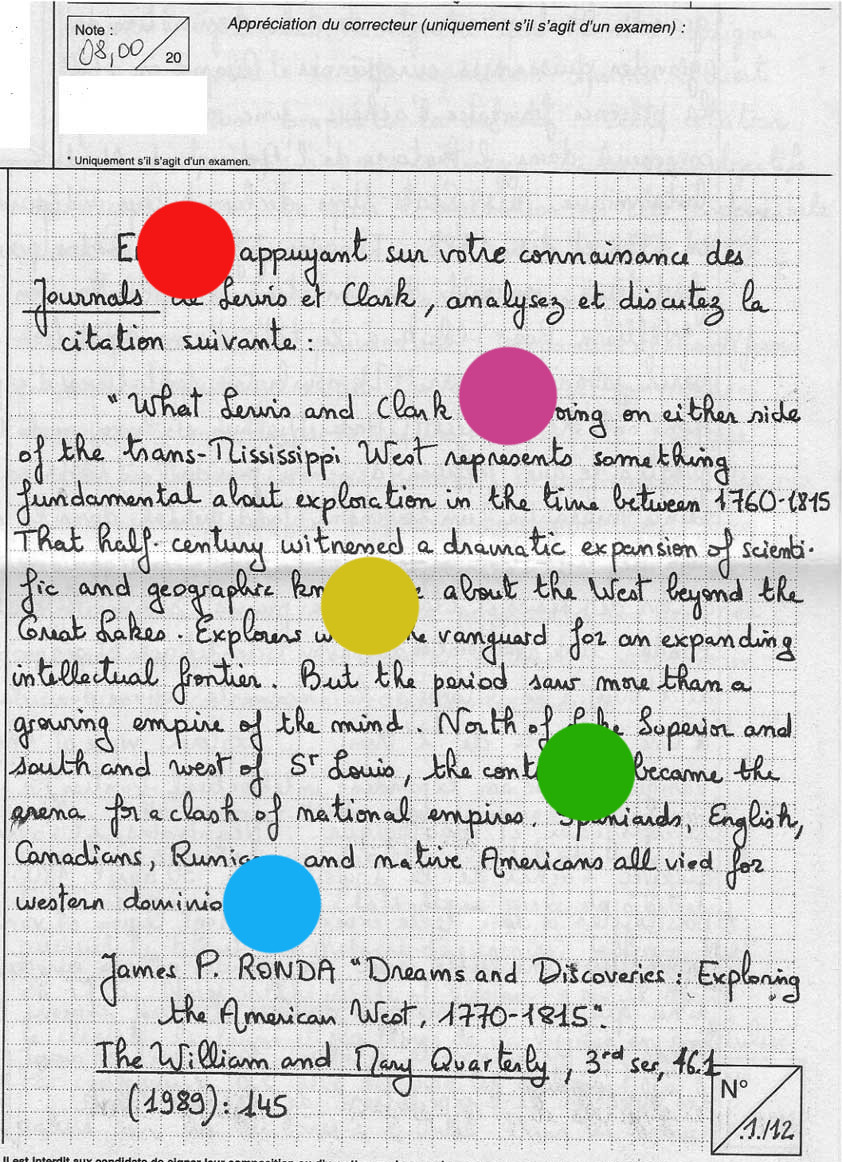 Note :
08,00
20
Appréciation du correcteur (uniquement s'il s'agit d'un examen) :
* Uniquement s'il s'agit d'un examen.
appuyant sur votre connaissance des
Journals de Lewis et Clark, analysez et discutez la
citation suivante :
"What Lewis and Clark on either side
of the trans-Mississippi West represents something
fundamental about exploration in the time between 1760-1815
That half-century witnessed a dramatic expansion of scienti-
fic and geographic about the West beyond the
Great Lakes. Explorers vanguard for an expanding
intellectual frontier. But the period saw more than a
growing empire of the mind. North of Superior and
south and west of St Louis, the became the
arena for a clash of national empires. Spaniards, English,
Canadians, and native Americans all vied for
western
James P. RONDA "Dreams and Discoveries : Exploring
the American West, 1770-1815".
The William and Mary Quarterly, 3rd ser, 46.1
(1989) : 145
N°
1/12